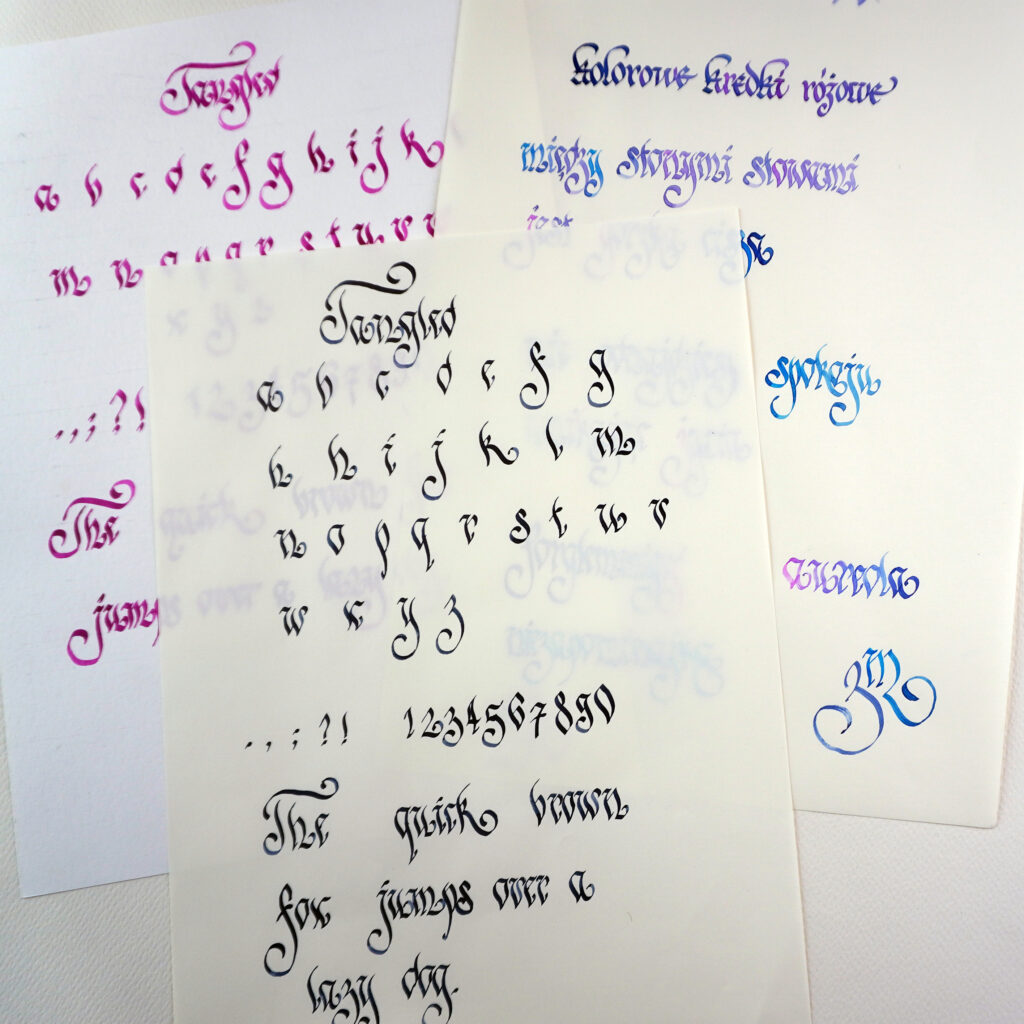 Tangled
a b c d e f g h i j k
m n o p q r s t u v
. , ; ? !
The quick brown
jumps over a lazy
kolorowe kredki różowe
między słonymi słowami
jest
spokoju
aureola
Tangled
a b c d e f g
h h i j k l m
n o p q r s t u v
w x y z
. , ; ? ! 1234567890
The quick brown
fox jumps over a
lazy dog.